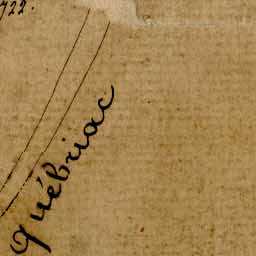 722.
Québriac